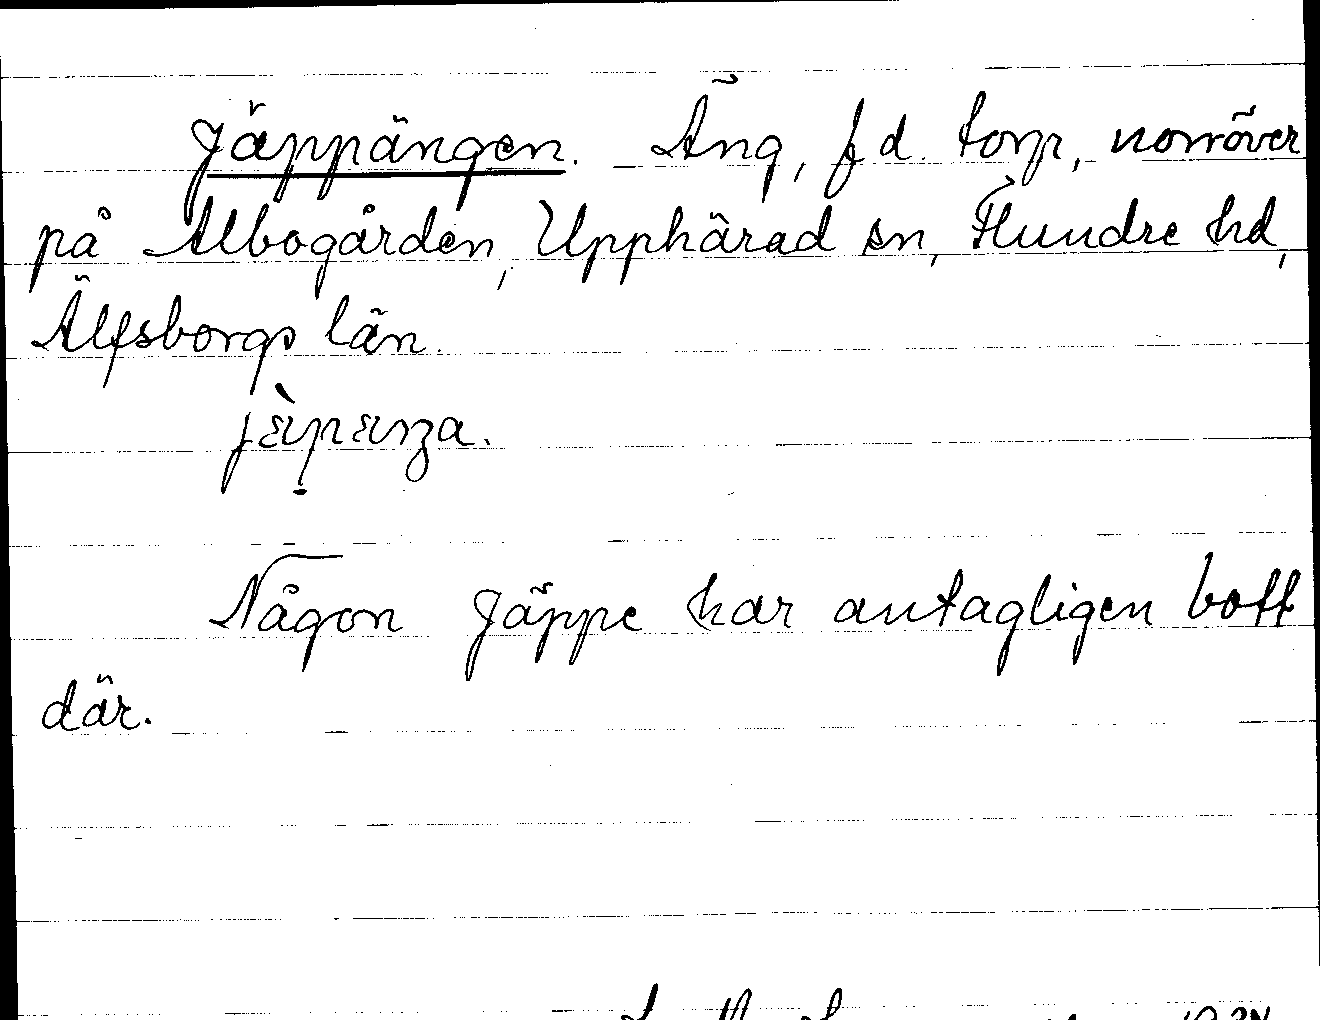 Jäppängen. Äng, f d. torp, norröver
på Albogården, Upphärad sn, Flundre hd,
Älfsborgs län.
Någon Jäppe har antagligen bott
där.